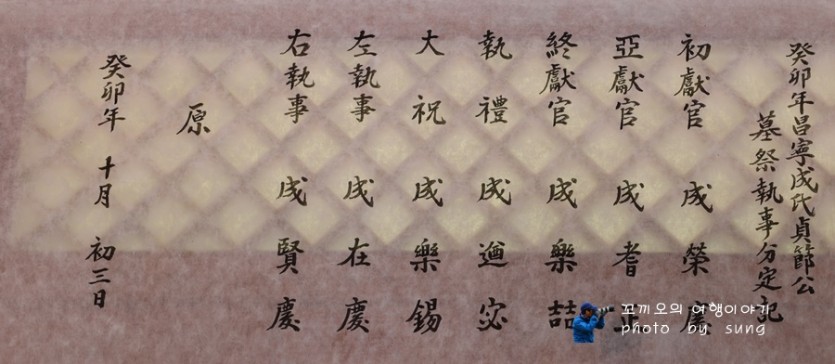 癸卯年昌寧成氏貞節公
墓祭執事分定記
初獻官 成 榮 慶
亞獻官 成 耆
終獻官 成 樂 喆
執禮 成
大祝 成 樂 錫
左執事 成 在 慶
右執事 成 賢 慶
原
癸卯年 十月 初三日
꼬끼오의 여행이야기
photo by sung